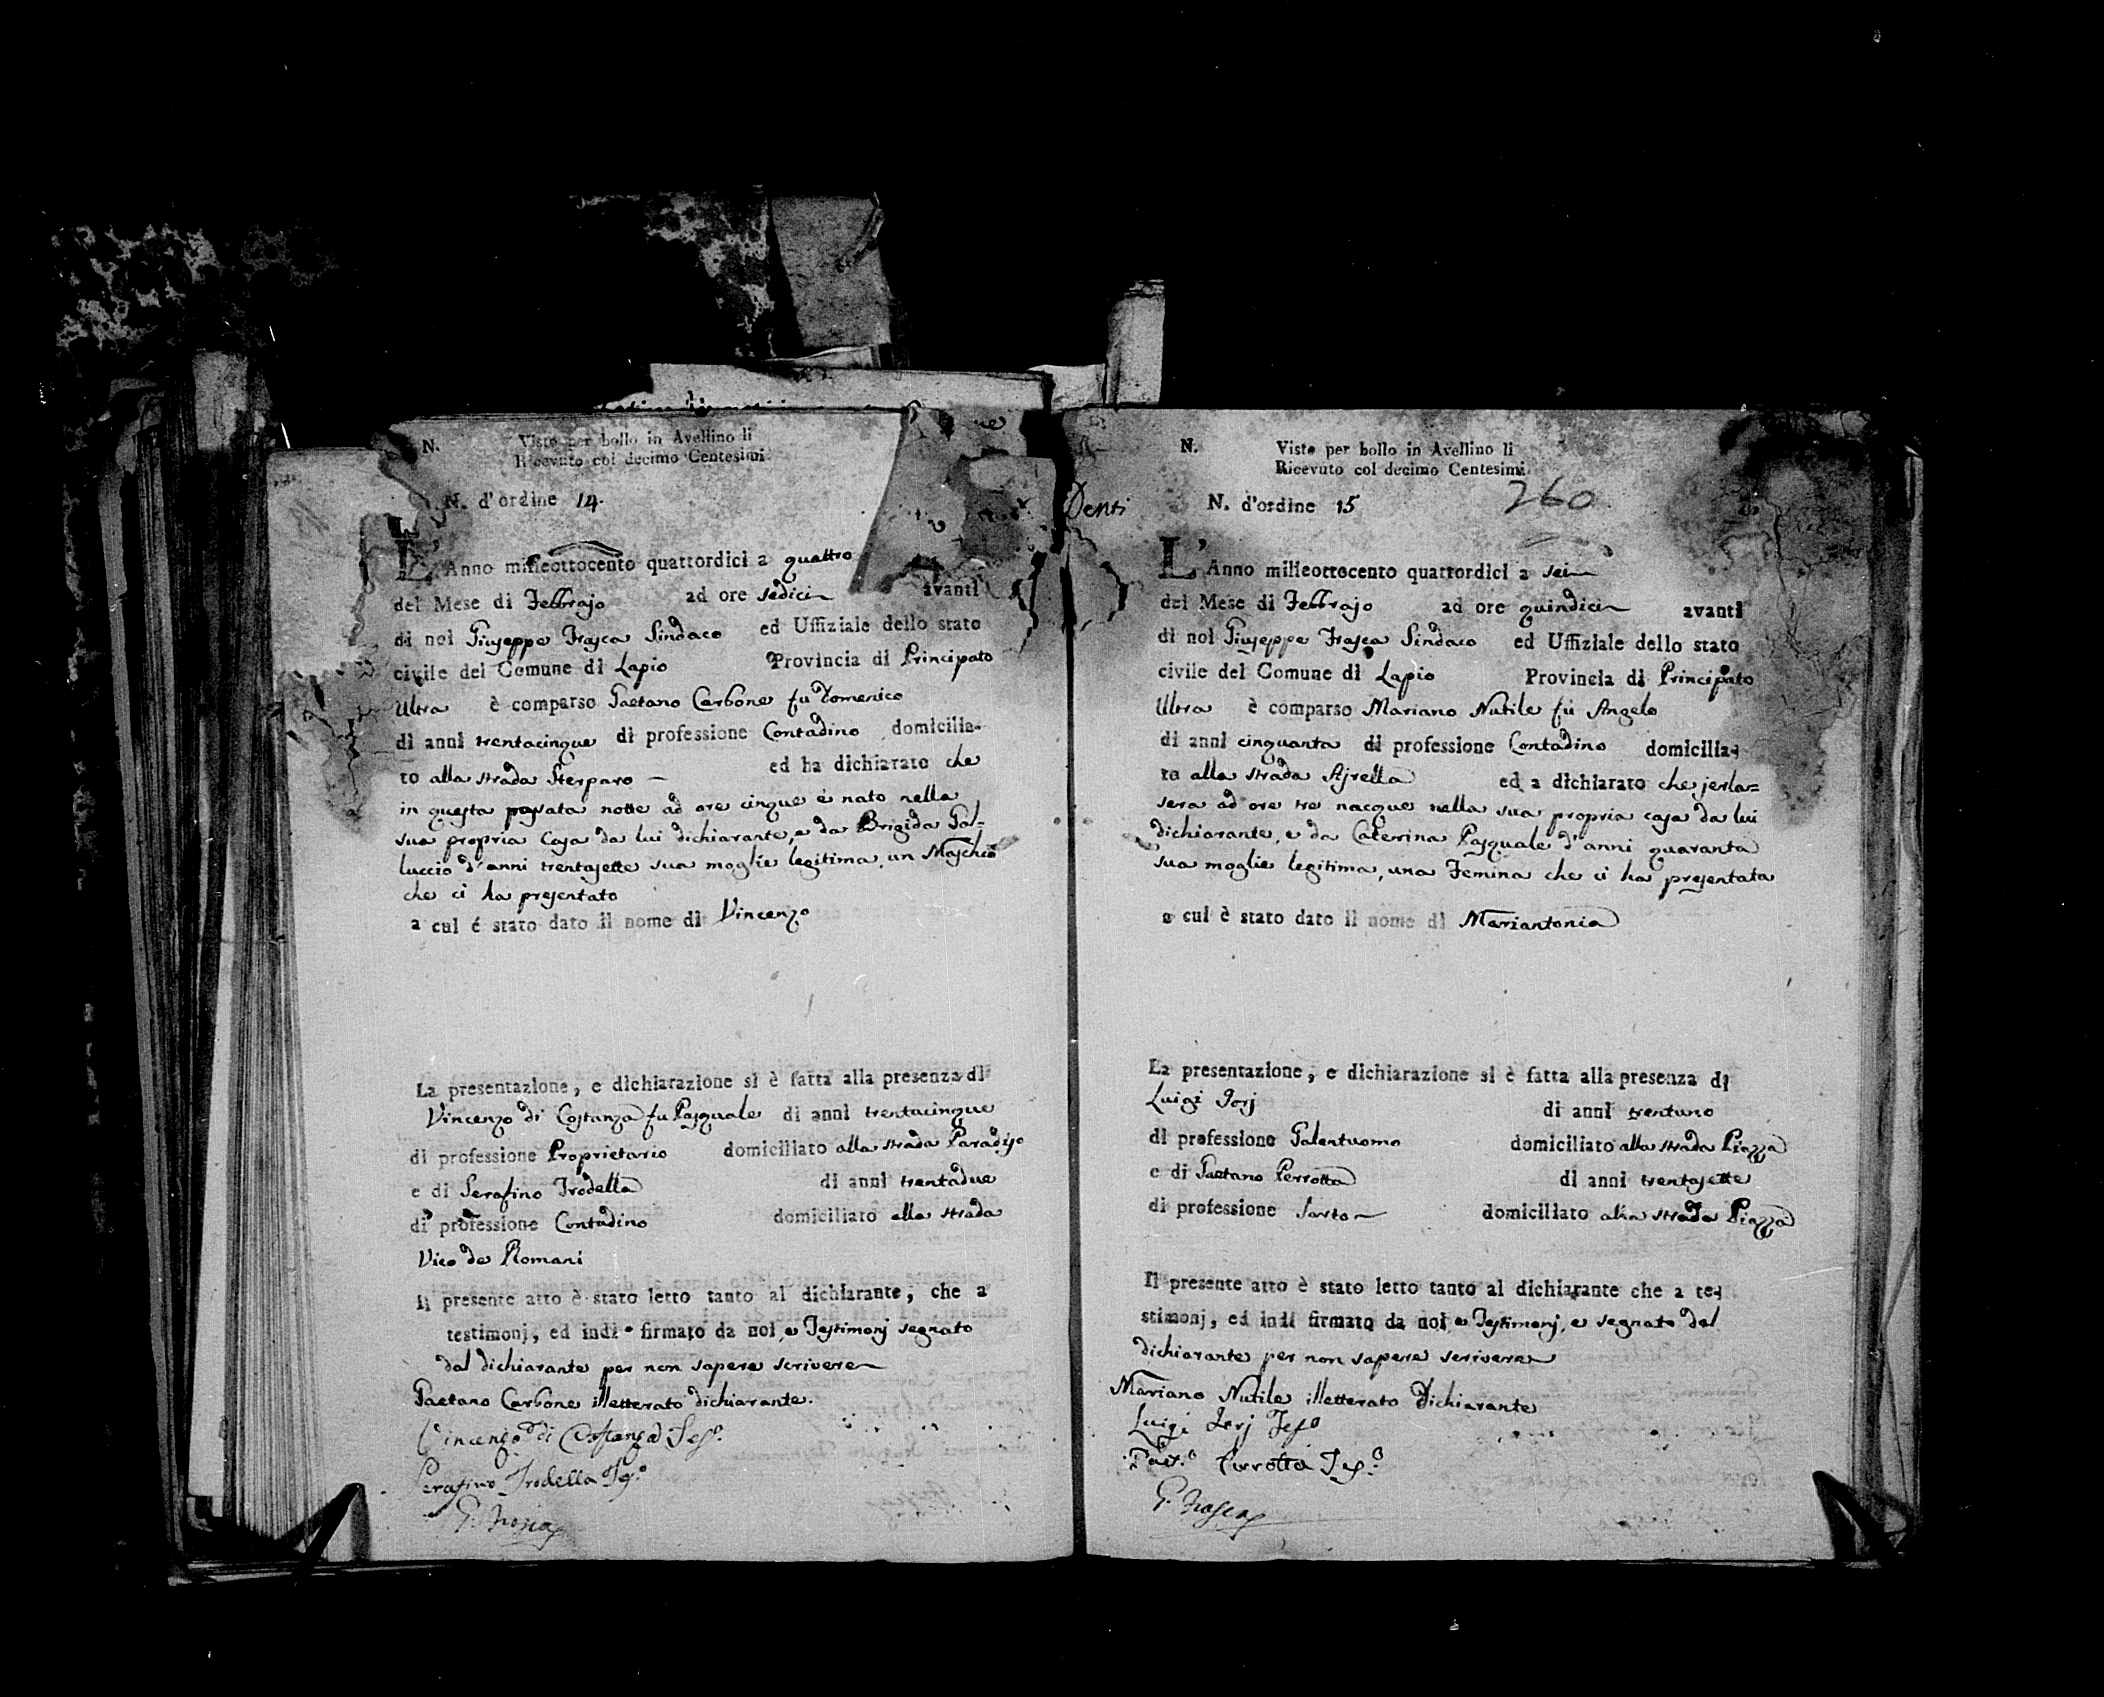 N.
Visto per bollo in Avellino li
Ricevuto col decimo Centesimi
N. d'ordine 14.
L'Anno milleottocento quattordici a quattro
del Mese di Febbrajo ad ore sedici avanti
di noi Giuseppe Frasca Sindaco ed Uffiziale dello stato
civile del Comune di Lapio Provincia di Principato
Ultra è comparso Gaetano Carbone fu Domenico
di anni trentacinque di professione Contadino domicilia-
to alla strada Sterparo ed ha dichiarato che
in questa passata notte ad ore cinque è nato nella
sua propria Casa da lui dichiarante, e da Brigida Gal=
luccio d'anni trentasette sua moglie legitima, un Maschio
che ci ha presentato
a cui é stato dato il nome di Vincenzo
La presentazione, e dichiarazione si è fatta alla presenza di
Vincenzo di Costanza fu Pasquale di anni trentacinque
di professione Proprietario domiciliato alla strada Paradiso
e di Serafino Trodella di anni trentadue
di professione Contadino domiciliato alla strada
Vico de Romani
Il presente atto è stato letto tanto al dichiarante, che a
testimonj, ed indi firmato da noi, e Testimonj segnato
dal dichiarante per non sapere scrivere
Gaetano Carbone illetterato dichiarante.
Vincenzo di Costanza Tes.º
Serafino Trodella Tes.º
G. Frasca
Denti
N.
Visto per bollo in Avellino li
Ricevuto col decimo Centesimi
N. d'ordine 15
260
L'Anno milleottocento quattordici a sei
del Mese di Febbrajo ad ore quindici avanti
di noi Giuseppe Frasca Sindaco ed Uffiziale dello stato
civile del Comune di Lapio Provincia di Principato
Ultra è comparso Mariano Nutile fù Angelo
di anni cinquanta di professione Contadino domicilia-
to alla strada Ajrella ed a dichiarato che jerla=
sera ad ore tre nacque nella sua propria casa da lui
dichiarante, e da Caterrina Pasquale d'anni quaranta
sua moglie legitima, una Femina che ci ha presentata
a cui è stato dato il nome di Mariantonia
La presentazione, e dichiarazione si è fatta alla presenza di
Luigi Jorj di anni trentuno
di professione Galentuomo domiciliato alla strada Piazza
e di Gaetano Perrotta di anni trentasette
di professione Sarto domiciliato alla strada Piazza
Il presente atto è stato letto tanto al dichiarante che a te-
stimonj, ed indi firmato da noi, e Testimonj, e segnato dal
dichiarante per non sapere scrivere
Mariano Nutile illetterato Dichiarante
Luigi Jorj Teso
Gaet.º Perrotta Tes.º
G. Frasca